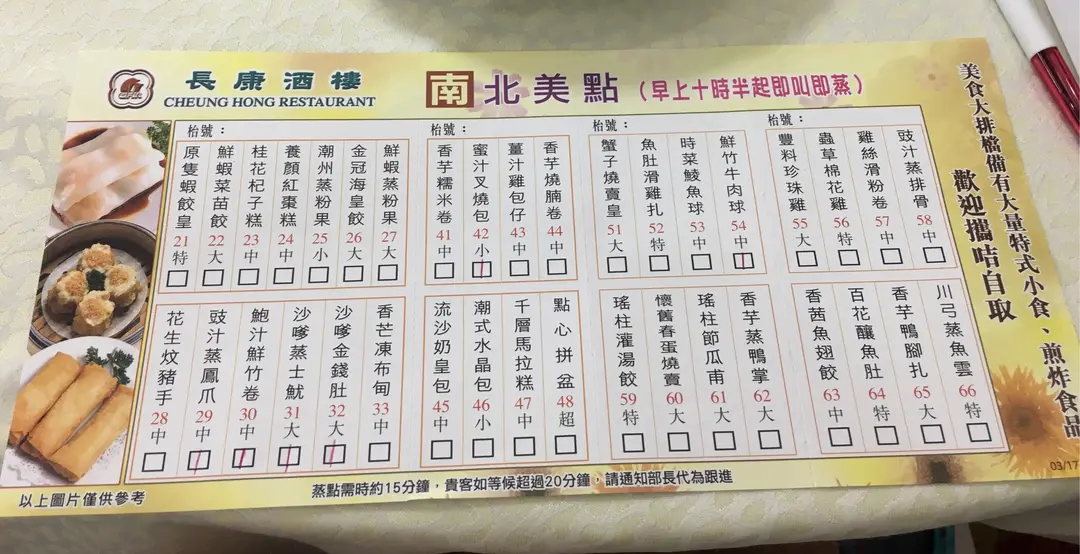 長康酒樓
CHEUNG HONG RESTAURANT
南北美點（早上十時半起即叫即蒸）
枱號：
原隻蝦餃皇 21 特
鮮蝦菜苗餃 22 大
桂花杞子糕 23 中
養顏紅棗糕 24 中
潮州蒸粉果 25 小
金冠海皇餃 26 大
鮮蝦蒸粉果 27 大
枱號：
香芋糯米卷 41 中
蜜汁叉燒包 42 小
薑汁雞包仔 43 中
香芋燒腩卷 44 中
枱號：
蟹子燒賣皇 51 大
魚肚滑雞扎 52 特
時菜鯪魚球 53 中
鮮竹牛肉球 54 中
枱號：
豐料珍珠雞 55 大
蟲草棉花雞 56 特
雞絲滑粉卷 57 中
豉汁蒸排骨 58 中
花生炆豬手 28 中
豉汁蒸鳳爪 29 中
鮑汁鮮竹卷 30 中
沙嗲蒸土魷 31 大
沙嗲金錢肚 32 大
香芒凍布甸 33 中
流沙奶皇包 45 中
潮式水晶包 46 小
千層馬拉糕 47 中
點心拼盆 48 超
瑤柱灌湯餃 59 特
懷舊春蛋燒賣 60 大
瑤柱節瓜甫 61 大
香芋蒸鴨掌 62 大
香茜魚翅餃 63 中
百花釀魚肚 64 特
香芋鴨腳扎 65 大
川弓蒸魚雲 66 特
美食大排檔備有大量特式小食、煎炸食品
歡迎攜咭自取
以上圖片僅供參考
蒸點需時約15分鐘，貴客如等候超過20分鐘，請通知部長代為跟進
03/17